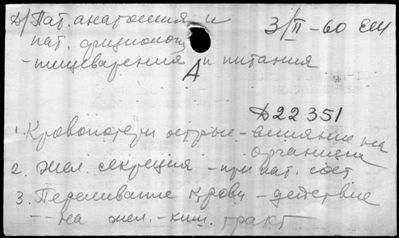 Д/ Пат. анатомия и
пат. физиолог.
3/II - 60 ЕМ
- пищеварения и питания
А
Д22351
1. Кровопотери острые - влияние на
организм
2. Жел. секреция - при пат. сост
3. Переливание крови - действие
-- на жел. - киш. тракт